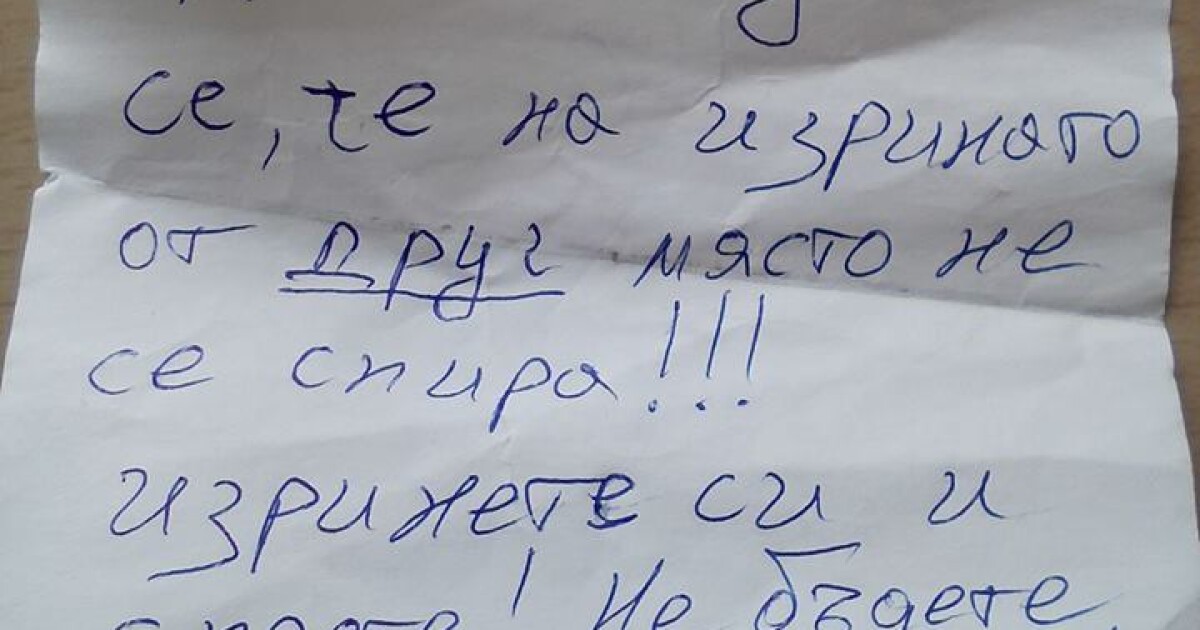 се, че на изринато
от друг място не
се спира!!!
изринете си и
! Не бъдете